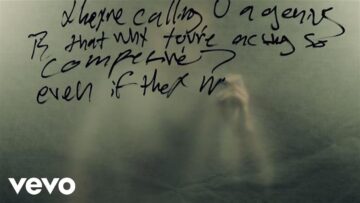 they're calling U a genius
Is that why you're acting so
even if they
vevo